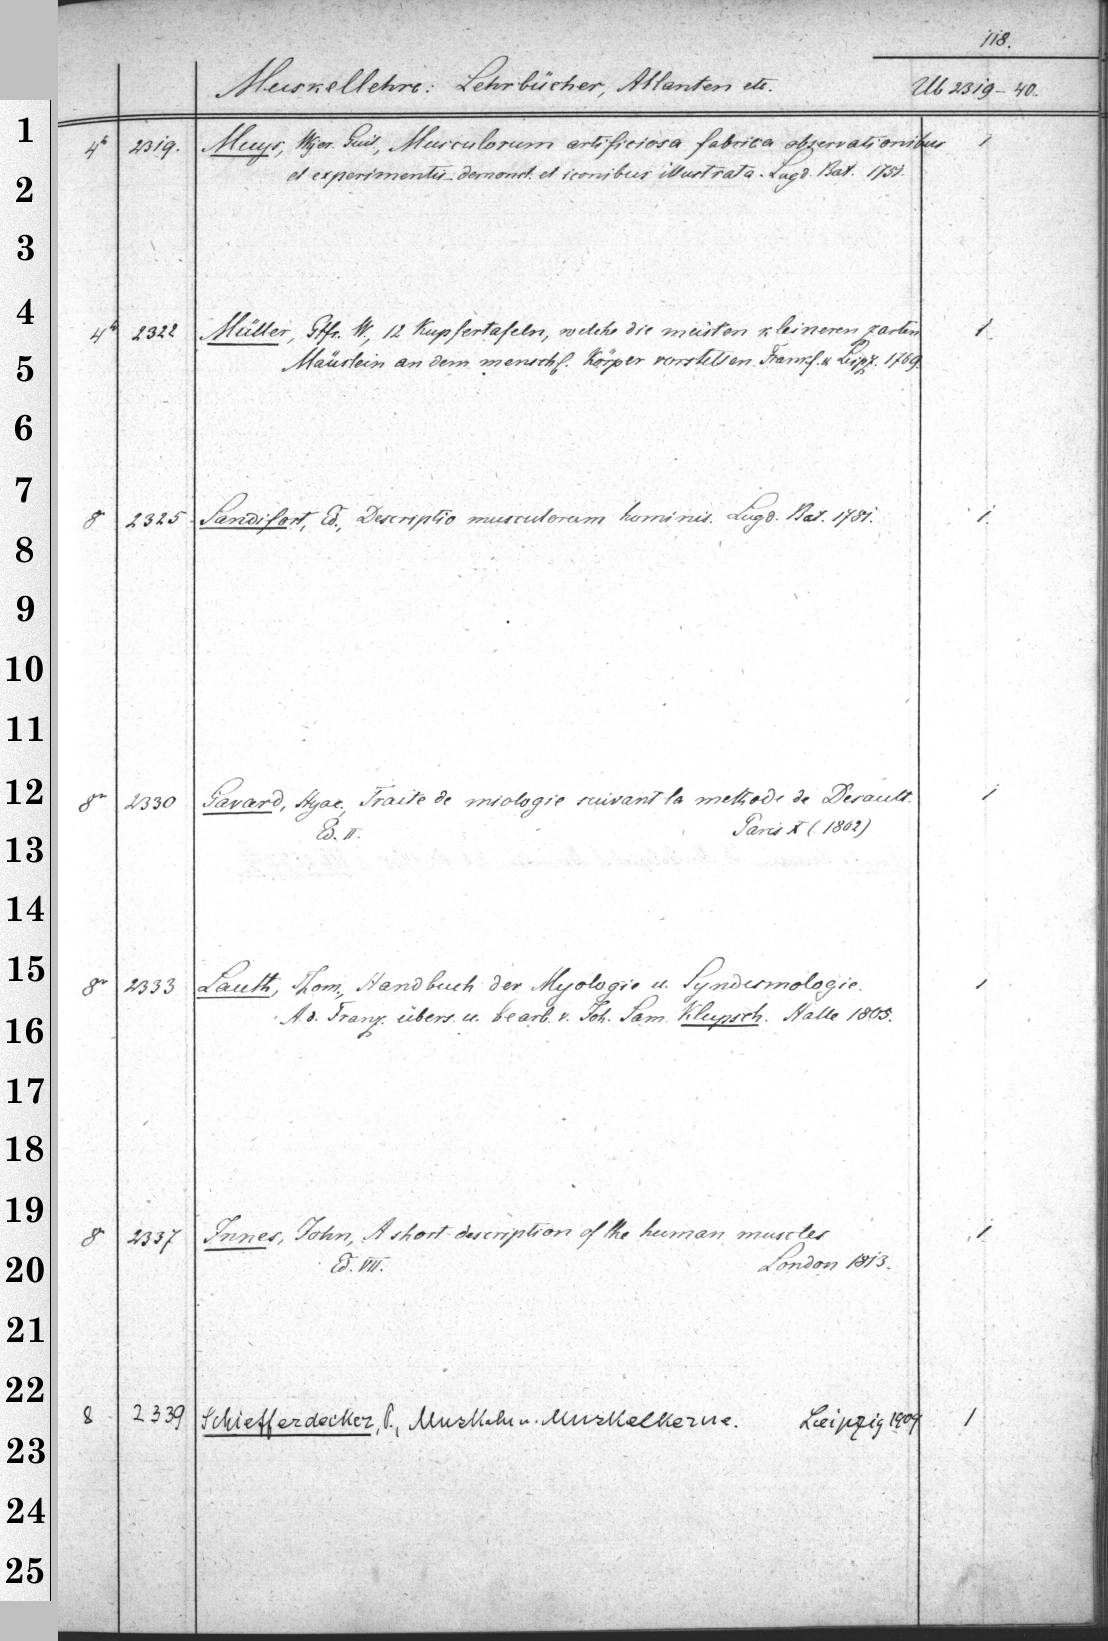 118.
Muskellehre: Lehrbücher, Atlanten etc. Ub 2319-40.
1
4° 2319. Muys, Wyer. Guil., Musculorum artificiosa fabrica observationibus 1
2
et experimentis demonst. et iconibus illustrata. Lugd. Bat. 1751.
3
4
4° 2322 Müller, Gtfr. W., 12 Kupfertafeln, welche die meisten kleineren zarten 1.
5
Mäuslein an dem menschl. Körper vorstellen Frankf. u Leipz. 1769.
6
7
8° 2325 Sandifort, Ed., Descriptio musculorum hominis. Lugd. Bat. 1781. 1.
8
9
10
11
12
8° 2330 Gavard, Hyac., Traite de miologie suivant la methode de Desault. 1
Ed. II. Paris X (1802)
13
14
15
8° 2333 Lauth, Thom., Handbuch der Myologie u. Syndesmologie. 1
16
A. d. Franz. übers. u. bearb. v. Joh. Sam. Klupsch. Halle 1805.
17
18
19
8° 2337 Innes, John, A short description of the human muscles 1
20
Ed. VII. London 1813.
21
22
8 2339 Schiefferdecker, P., Muskeln u. Muskelkerne. Leipzig 1909 1
23
24
25